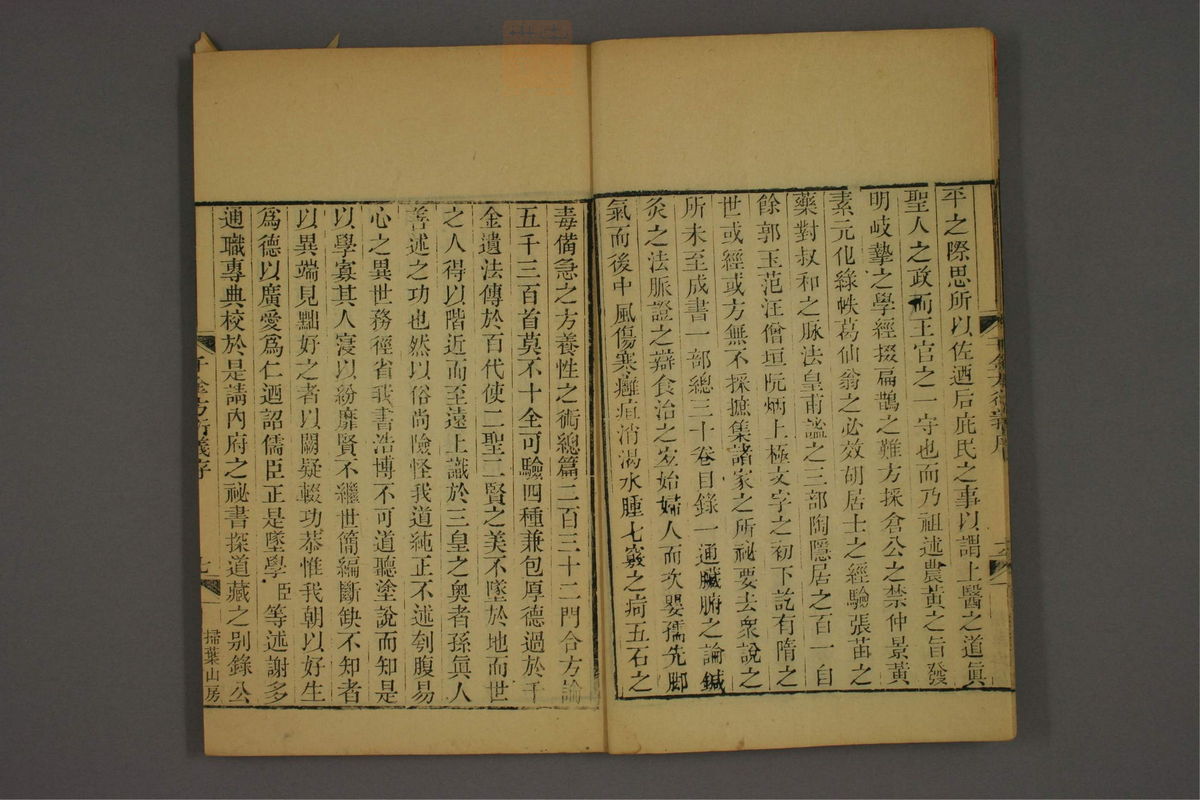 平之際思所以佐迺后庇民之事以謂上醫之道眞
聖人之政而王官之一守也而乃祖述農黃之旨發
明岐摯之學經掇扁鵲之難方採倉公之禁仲景黃
素元化綠帙葛仙翁之必效胡居士之經驗張苗之
藥對叔和之脉法皇甫謐之三部陶隱居之百一自
餘郭玉范汪僧垣阮炳上極文字之初下訖有隋之
世或經或方無不採摭集諸家之所祕要去衆說之
所未至成書一部總三十卷目錄一通臟腑之論鍼
灸之法脈證之辯食治之宜始婦人而次嬰孺先脚
氣而後中風傷寒癰疽消渴水腫七竅之疴五石之
毒備急之方養性之術總篇二百三十二門合方論
五千三百首莫不十全可驗四種兼包厚德過於千
金遺法傳於百代使二聖二賢之美不墜於地而世
之人得以階近而至遠上識於三皇之奧者孫眞人
善述之功也然以俗尚險怪我道純正不述刳腹易
心之異世務徑省我書浩博不可道聽塗說而知是
以學寡其人寖以紛靡賢不繼世簡編斷缺不知者
以異端見黜好之者以闕疑輟功恭惟我朝以好生
爲德以廣愛爲仁迺詔儒臣正是墜學臣等述謝多
通職專典校於是請內府之祕書探道藏之别錄公
千金方衍義序
七
掃葉山房